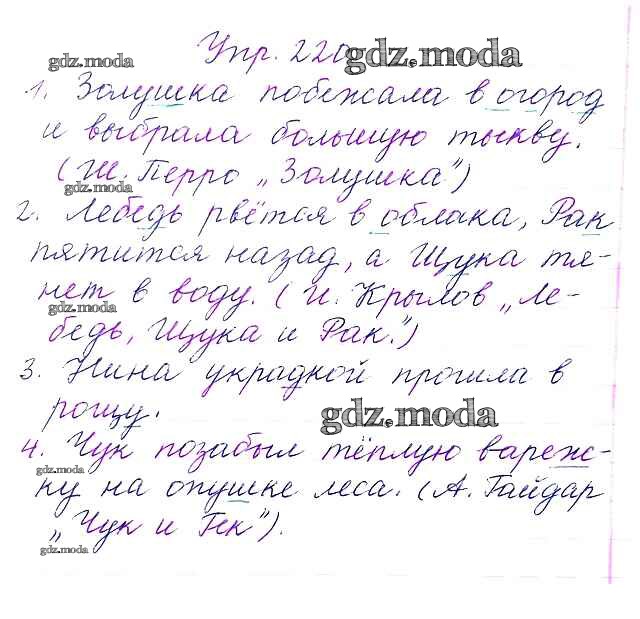 Упр. 220
gdz.moda gdz.moda
1. Золушка побежала в огород
и выбрала большую тыкву.
(Ш. Перро „Золушка")
gdz.moda
2. Лебедь рвётся в облака, Рак
пятится назад, а Щука тя-
нет в воду. (И. Крылов „Ле-
gdz.moda
бедь, Щука и Рак.")
3. Нина украдкой прошла в
рощу.
gdz.moda
4. Чук позабыл тёплую вареж-
gdz.moda
ку на опушке леса. (А. Гайдар
„Чук и Гек").
gdz.moda